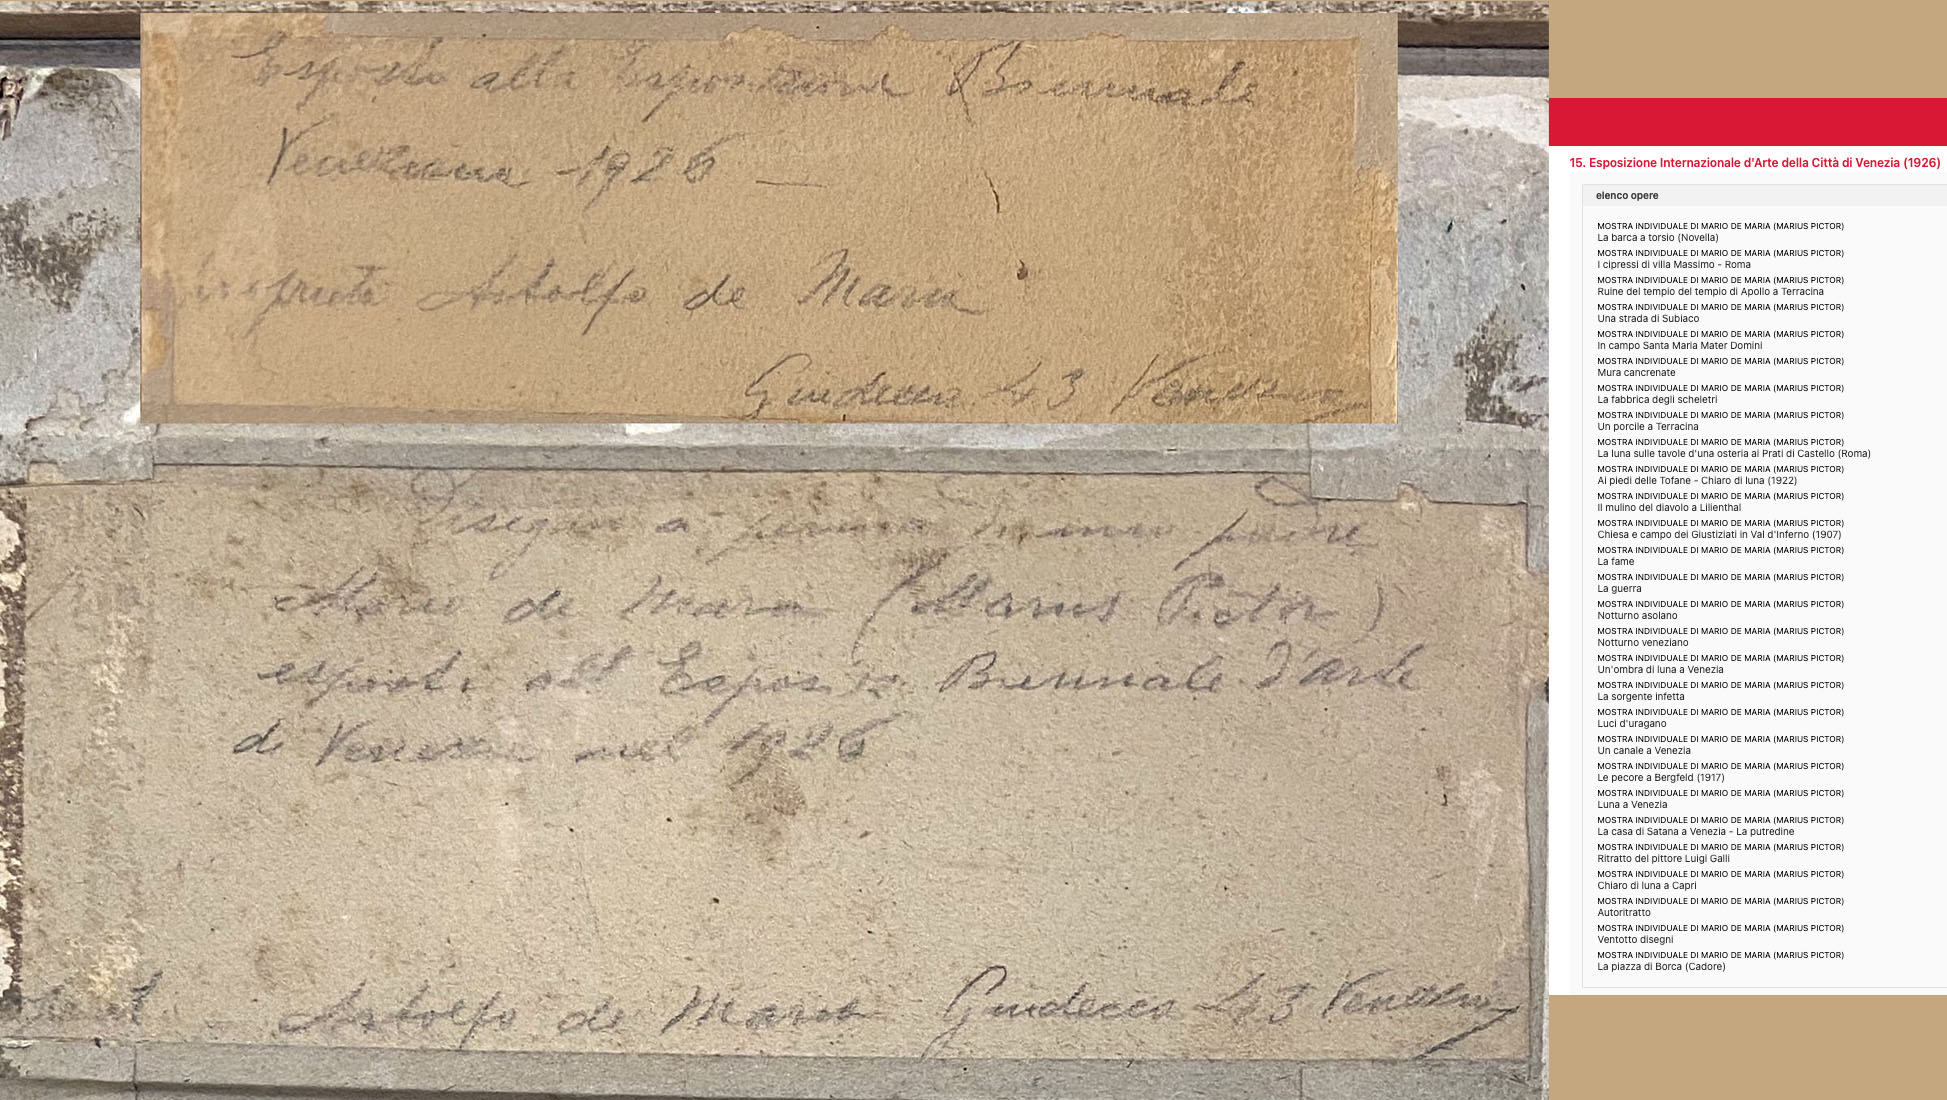 Esposto alla Esposizione Biennale
Veneziana - 1926 —
propriete Astolfo de Maria
Giudecca 43 Venezia
Disegni a penna di mio padre
Mario de Maria (Marius Pictor)
esposti all'Esposiz. Biennale d'arte
di Venezia nel 1926
Astolfo de Maria Giudecca 43 Venezia
15. Esposizione Internazionale d'Arte della Città di Venezia (1926)
elenco opere
MOSTRA INDIVIDUALE DI MARIO DE MARIA (MARIUS PICTOR)
La barca a torsio (Novella)
MOSTRA INDIVIDUALE DI MARIO DE MARIA (MARIUS PICTOR)
I cipressi di villa Massimo - Roma
MOSTRA INDIVIDUALE DI MARIO DE MARIA (MARIUS PICTOR)
Ruine del tempio del tempio di Apollo a Terracina
MOSTRA INDIVIDUALE DI MARIO DE MARIA (MARIUS PICTOR)
Una strada di Subiaco
MOSTRA INDIVIDUALE DI MARIO DE MARIA (MARIUS PICTOR)
In campo Santa Maria Mater Domini
MOSTRA INDIVIDUALE DI MARIO DE MARIA (MARIUS PICTOR)
Mura cancrenate
MOSTRA INDIVIDUALE DI MARIO DE MARIA (MARIUS PICTOR)
La fabbrica degli scheletri
MOSTRA INDIVIDUALE DI MARIO DE MARIA (MARIUS PICTOR)
Un porcile a Terracina
MOSTRA INDIVIDUALE DI MARIO DE MARIA (MARIUS PICTOR)
La luna sulle tavole d'una osteria ai Prati di Castello (Roma)
MOSTRA INDIVIDUALE DI MARIO DE MARIA (MARIUS PICTOR)
Ai piedi delle Tofane - Chiaro di luna (1922)
MOSTRA INDIVIDUALE DI MARIO DE MARIA (MARIUS PICTOR)
Il mulino del diavolo a Lilienthal
MOSTRA INDIVIDUALE DI MARIO DE MARIA (MARIUS PICTOR)
Chiesa e campo dei Giustiziati in Val d'Inferno (1907)
MOSTRA INDIVIDUALE DI MARIO DE MARIA (MARIUS PICTOR)
La fame
MOSTRA INDIVIDUALE DI MARIO DE MARIA (MARIUS PICTOR)
La guerra
MOSTRA INDIVIDUALE DI MARIO DE MARIA (MARIUS PICTOR)
Notturno asolano
MOSTRA INDIVIDUALE DI MARIO DE MARIA (MARIUS PICTOR)
Notturno veneziano
MOSTRA INDIVIDUALE DI MARIO DE MARIA (MARIUS PICTOR)
Un'ombra di luna a Venezia
MOSTRA INDIVIDUALE DI MARIO DE MARIA (MARIUS PICTOR)
La sorgente infetta
MOSTRA INDIVIDUALE DI MARIO DE MARIA (MARIUS PICTOR)
Luci d'uragano
MOSTRA INDIVIDUALE DI MARIO DE MARIA (MARIUS PICTOR)
Un canale a Venezia
MOSTRA INDIVIDUALE DI MARIO DE MARIA (MARIUS PICTOR)
Le pecore a Bergfeld (1917)
MOSTRA INDIVIDUALE DI MARIO DE MARIA (MARIUS PICTOR)
Luna a Venezia
MOSTRA INDIVIDUALE DI MARIO DE MARIA (MARIUS PICTOR)
La casa di Satana a Venezia - La putredine
MOSTRA INDIVIDUALE DI MARIO DE MARIA (MARIUS PICTOR)
Ritratto del pittore Luigi Galli
MOSTRA INDIVIDUALE DI MARIO DE MARIA (MARIUS PICTOR)
Chiaro di luna a Capri
MOSTRA INDIVIDUALE DI MARIO DE MARIA (MARIUS PICTOR)
Autoritratto
MOSTRA INDIVIDUALE DI MARIO DE MARIA (MARIUS PICTOR)
Ventotto disegni
MOSTRA INDIVIDUALE DI MARIO DE MARIA (MARIUS PICTOR)
La piazza di Borca (Cadore)